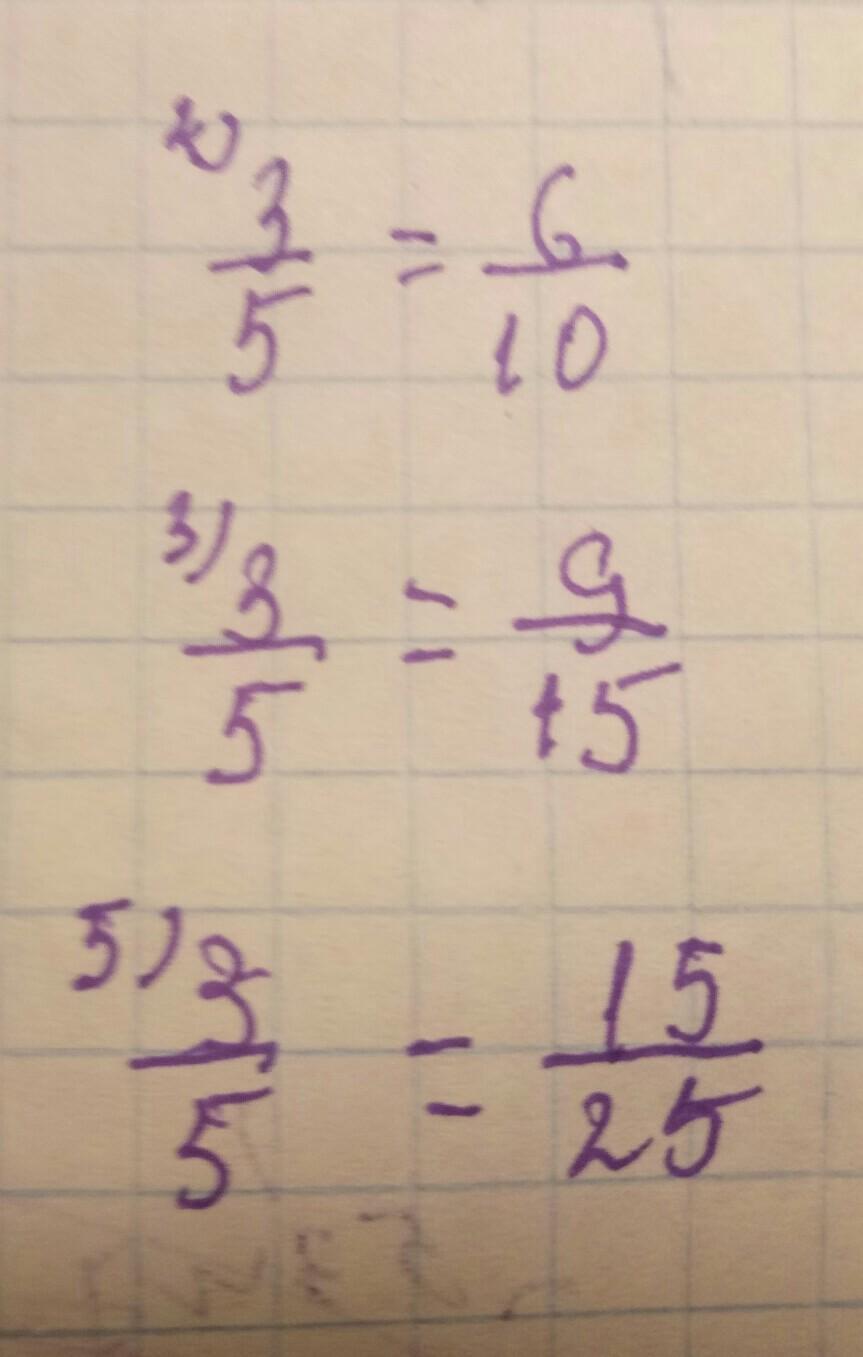 2) 3/5 = 6/10
3) 3/5 = 9/15
5) 3/5 = 15/25